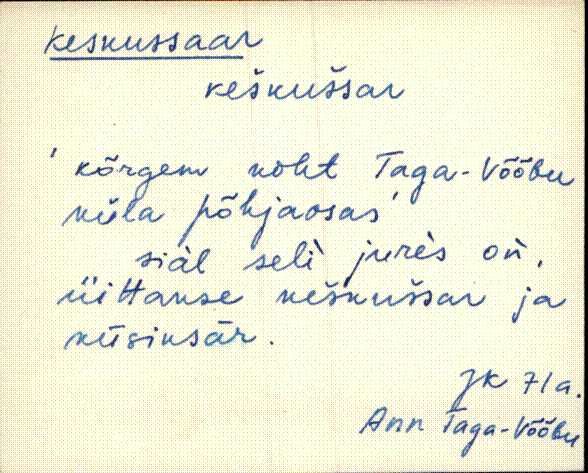 Keskussaar
keškuššar
'kõrgem koht Taga-Võõbu
küla põhjaosas'
siäl seli jures on,
üittanse keškuššar ja
küsiksär.
JK 71a.
Ann Taga-Võõbu